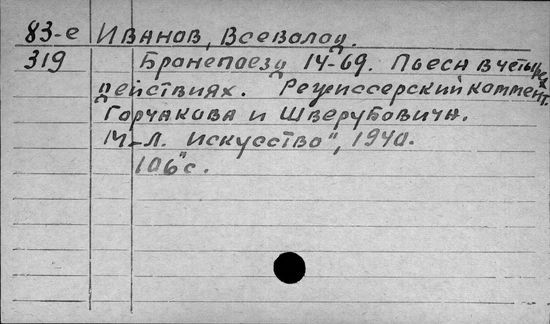 83-е Иванов, Всеволод.
319 Бронепоезд 14-69. Пьеса в четырех
действиях. Режиссерский коммент.
Горчакова и Шверубовича.
М-Л. „Искусство", 1940.
106 с.